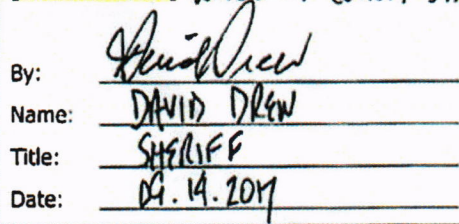 By: David Drew
Name: DAVID DREW
Title: SHERIFF
Date: 09.14.2017